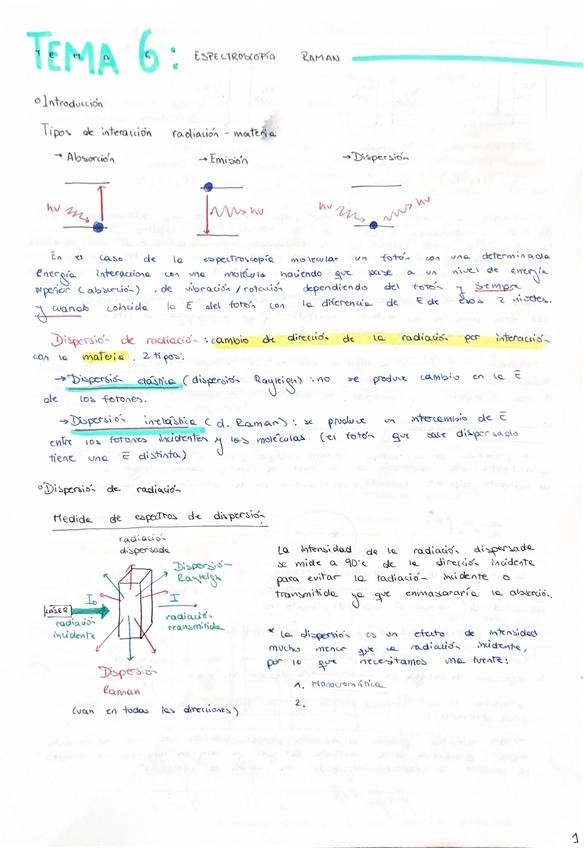 TEMA 6: ESPECTROSCOPÍA RAMAN
º Introducción
Tipos de interacción radiación - materia
→ Absorción → Emisión → Dispersión
hν hν hν hν
En el caso de la espectroscopía molecular un fotón con una determinada
energía interacciona con una molécula haciendo que pase a un nivel de energía
superior (absorción), de vibración/rotación dependiendo del fotón y siempre
y cuando coincida la E del fotón con la diferencia de E de esos 2 niveles.
Dispersión de radiación: cambio de dirección de la radiación por interacción
con la materia. 2 tipos:
→ Dispersión elástica (dispersión Rayleign): no se produce cambio en la E
de los fotones.
→ Dispersión inelástica (d. Raman): se produce un intercambio de E
entre los fotones incidentes y las moléculas (el fotón que sale dispersado
tiene una E distinta)
º Dispersión de radiación
Medida de espectros de dispersión
radiación
dispersada
Dispersión
Rayleign
LÁSER I₀ I
radiación
incidente
radiación
transmitida
Dispersión
Raman
(van en todas las direcciones)
La intensidad de la radiación dispersada
se mide a 90º de la dirección incidente
para evitar la radiación incidente o
transmitida ya que enmascararía la absorción.
* La dispersión es un efecto de intensidad
mucho menor que la radiación incidente,
por lo que necesitamos una fuente:
1. Monocromática
2.
1